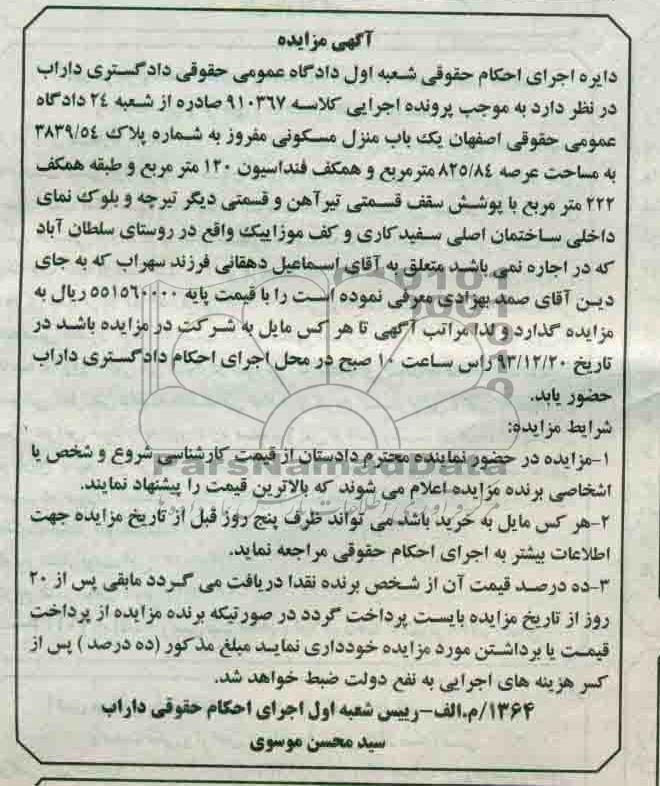 آگهی مزایده
دایره اجرای احکام حقوقی شعبه اول دادگاه عمومی حقوقی دادگستری داراب
در نظر دارد به موجب پرونده اجرایی کلاسه ۹۱۰۳۶۷ صادره از شعبه ۲۴ دادگاه
عمومی حقوقی اصفهان یک باب منزل مسکونی مفروز به شماره پلاک ۳۸۳۹/۵۴
به مساحت عرصه ۸۲۵/۸۴ مترمربع و همکف فنداسیون ۱۲۰ متر مربع و طبقه همکف
۲۲۲ متر مربع با پوشش سقف قسمتی تیرآهن و قسمتی دیگر تیرچه و بلوک نمای
داخلی ساختمان اصلی سفیدکاری و کف موزاییک واقع در روستای سلطان آباد
که در اجاره نمی باشد متعلق به آقای اسماعیل دهقانی فرزند سهراب که به جای
دین آقای صمد بهزادی معرفی نموده است را با قیمت پایه ۵۵۱۵۶۰۰۰۰ ریال به
مزایده گذارد و لذا مراتب آگهی تا هر کس مایل به شرکت در مزایده باشد در
تاریخ ۹۳/۱۲/۲۰ راس ساعت ۱۰ صبح در محل اجرای احکام دادگستری داراب
حضور یابد.
شرایط مزایده:
۱-مزایده در حضور نماینده محترم دادستان از قیمت کارشناسی شروع و شخص یا
اشخاصی برنده مزایده اعلام می شوند که بالاترین قیمت را پیشنهاد نمایند.
ParsNamadData
۲-هر کس مایل به خرید باشد می تواند ظرف پنج روز قبل از تاریخ مزایده جهت
اطلاعات بیشتر به اجرای احکام حقوقی مراجعه نماید.
۳-ده درصد قیمت آن از شخص برنده نقدا دریافت می گردد مابقی پس از ۲۰
روز از تاریخ مزایده بایست پرداخت گردد در صورتیکه برنده مزایده از پرداخت
قیمت یا برداشتن مورد مزایده خودداری نماید مبلغ مذکور (ده درصد) پس از
کسر هزینه های اجرایی به نفع دولت ضبط خواهد شد.
۱۳۶۴/م.الف-رییس شعبه اول اجرای احکام حقوقی داراب
سید محسن موسوی